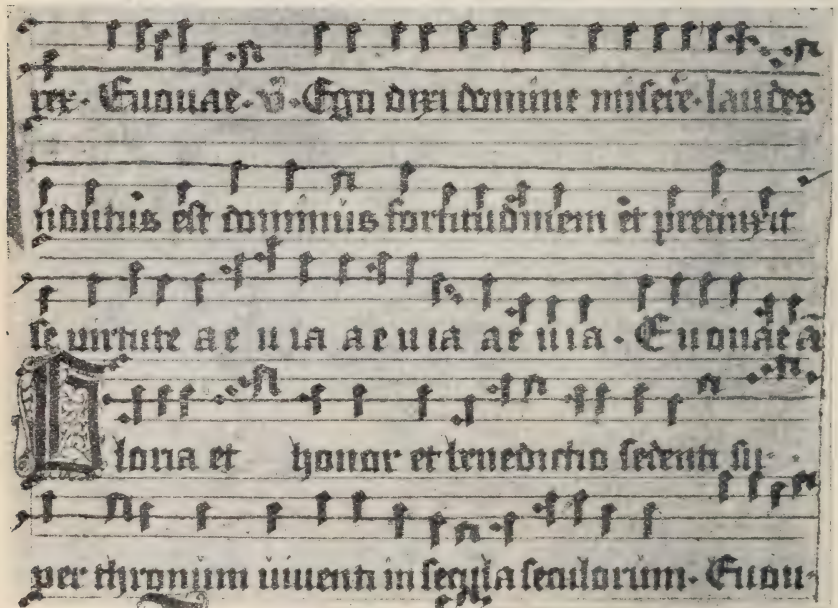 rex. Euouae. v̄. Ego dixi domine misere. laudes
nduitus est dominus fortitudinem et precinxit
se uirtute ae u ia ae u ia ae u ia. Euouae ā
loria et honor et benedictio sedenti su
per thronum uiuenti in secula seculorum. Euou